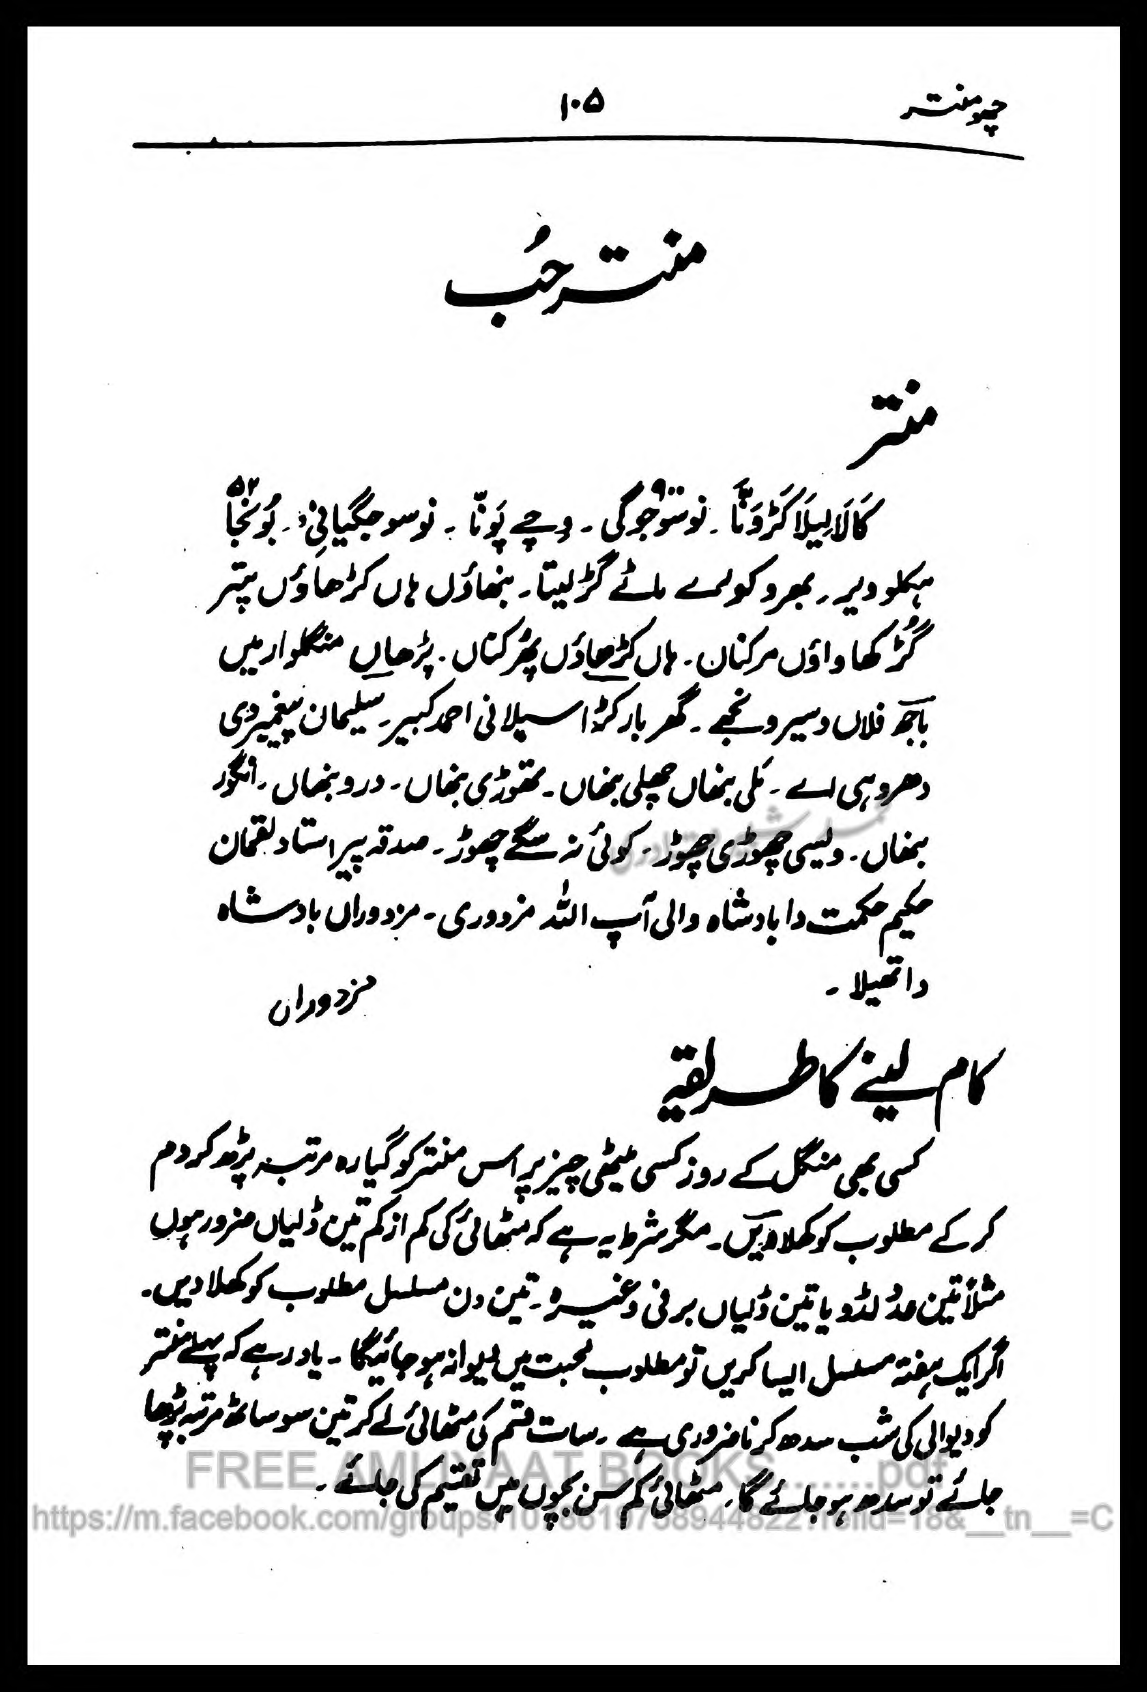 چھومنتر
۱۰۵
منتر حُب
منتر
کَالَا لِیلَا کَڑْوَنَّا ۔ نوسَوجوگی ۔ وچے پَونّا ۔ نوسو جگیانی ۔ بونجا
۹۰۰ ۵۲
گُڑ کھاواؤں مرکناں ۔ ہاں کڑھاؤں پھُرکناں ۔ پڑھاں منگلوار میں
باجھ فلاں دسیرونجے ۔ گھر بار کڑا سیلانی احمد کبیر ۔ سلیمان پیغمبر دی
دھروہی اے ۔ نَلی بنھاں چھلی بنھاں ۔ تھوڑی بنھاں ۔ درو بنھاں ۔ انگور
بنھاں ۔ ولیسی چھوڑی چھوڑ ۔ کوئی نہ سگے چھوڑ ۔ صدقہ پیر استاد لقمان
حکیم حکمت دا بادشاہ والی آپ اللہ مزدوری ۔ مزدوراں بادشاہ
دا تھیلا ۔
مزدوراں
کام لینے کا طریقہ
کسی بھی منگل کے روز کسی میٹھی چیز پر اس منتر کو گیارہ مرتبہ پڑھ کر دم
کر کے مطلوب کو کھلادیں ۔ مگر شرط یہ ہے کہ مٹھائی کی کم از کم تین ڈلیاں ضرور ہوں
مثلاً تین عدد لڈو یا تین ڈلیاں برفی وغیرہ ۔ تین دن مسلسل مطلوب کو کھلا دیں ۔
اگر ایک ہفتہ مسلسل ایسا کریں تو مطلوب محبت میں دیوانہ ہو جائیگا ۔ یاد رہے کہ پہلے منتر
کو دیوالی کی شب سدھ کرنا ضروری ہے ۔ سات قسم کی مٹھائی لے کر تین سو ساٹھ مرتبہ پڑھا
جائے تو سدھ ہو جائے گا ۔ مٹھائی کم سن بچوں میں تقسیم کی جائے ۔
FREE AMLIYAAT BOOKS.......pdf